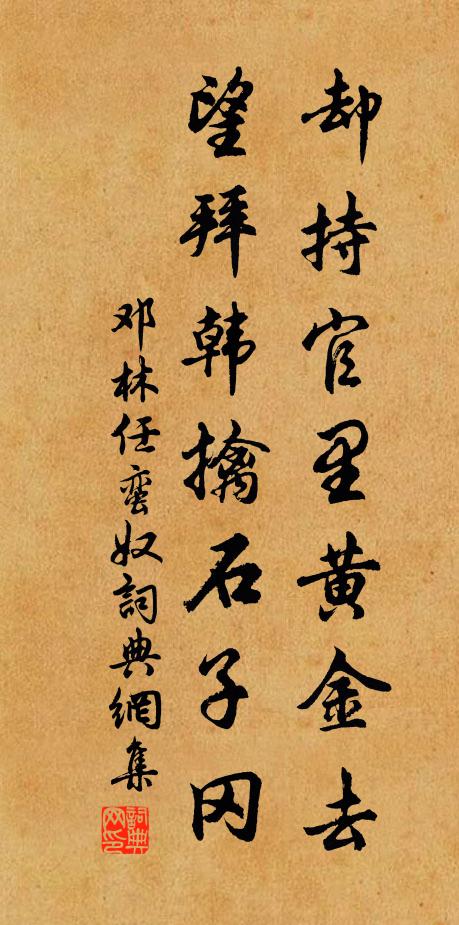 却持官里黄金去
望拜韩擒石子冈
邓林任蛮奴詞典網集
詞典
网印